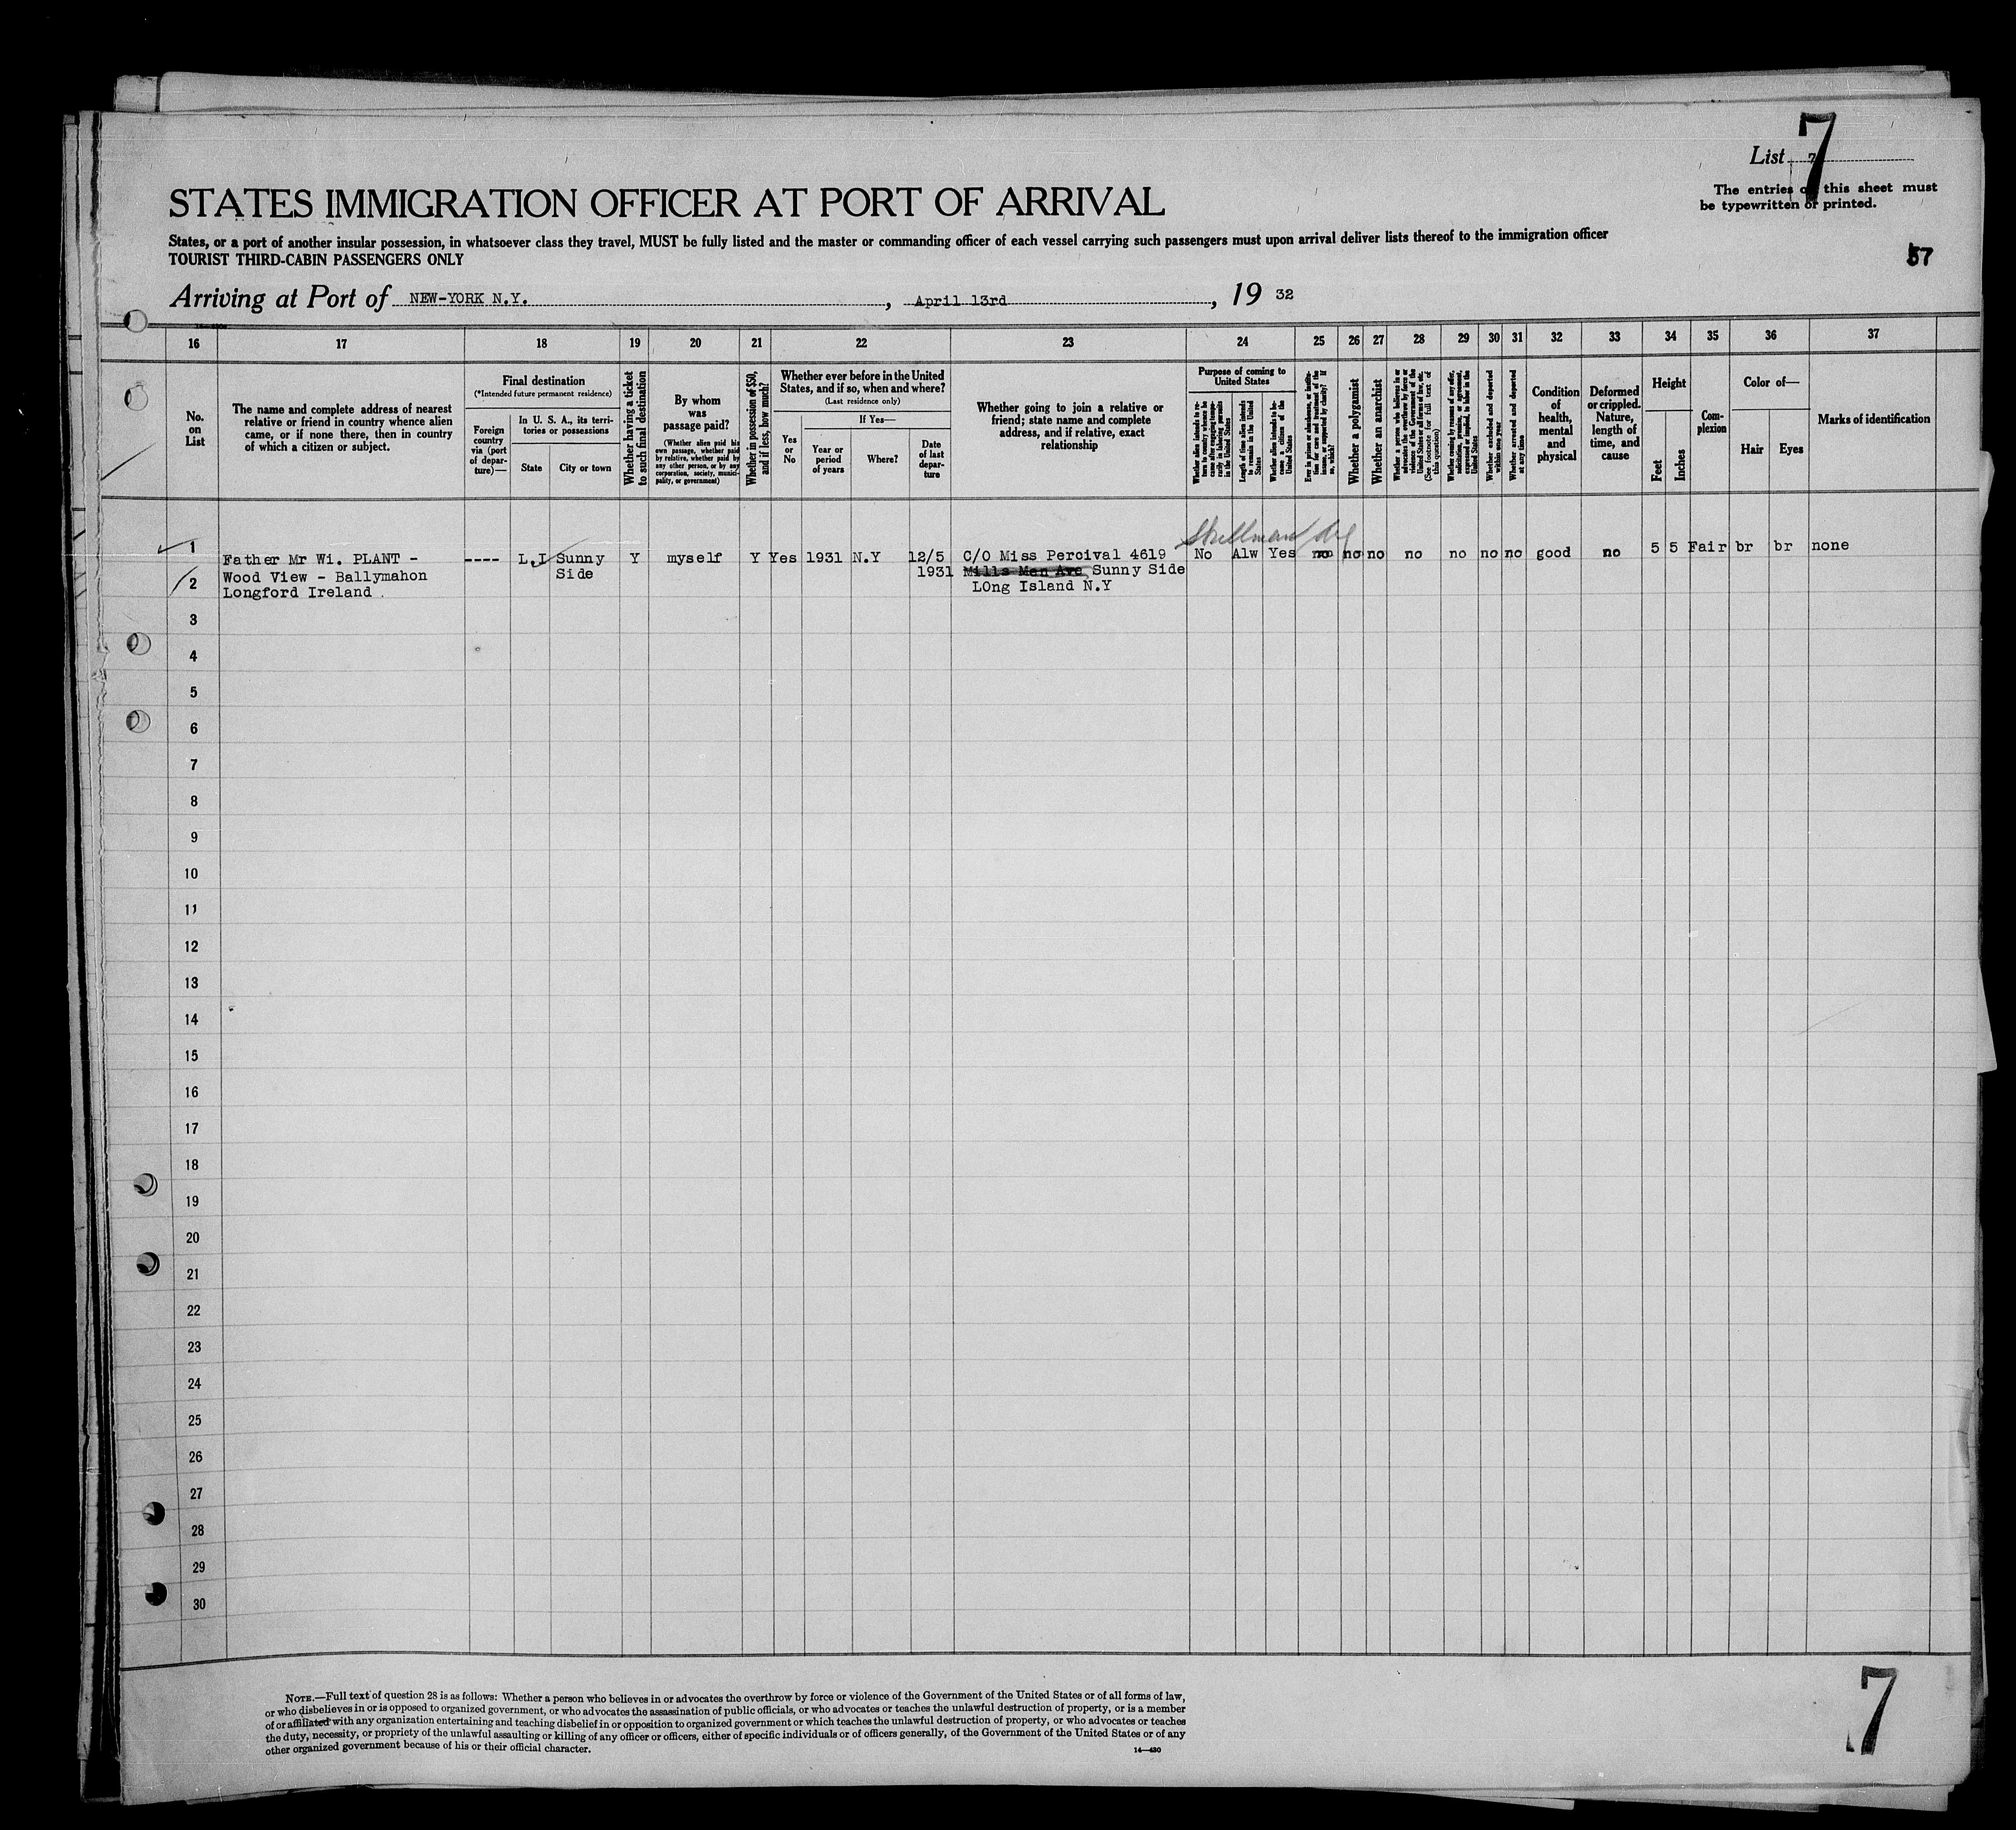 7
List 7
The entries on this sheet must
be typewritten or printed.
STATES IMMIGRATION OFFICER AT PORT OF ARRIVAL
States, or a port of another insular possession, in whatsoever class they travel, MUST be fully listed and the master or commanding officer of each vessel carrying such passengers must upon arrival deliver lists thereof to the immigration officer
TOURIST THIRD-CABIN PASSENGERS ONLY
57
Arriving at Port of NEW-YORK N.Y. , April 13rd , 19 32
16 17 18 19 20 21 22 23 24 25 26 27 28 29 30 31 32 33 34 35 36 37
No.
on
List
The name and complete address of nearest
relative or friend in country whence alien
came, or if none there, then in country
of which a citizen or subject.
Final destination
(*Intended future permanent residence)
Foreign
country
via (port
of depar-
ture)—
In U. S. A., its terri-
tories or possessions
State
City or town
Whether having a ticket
to such final destination
By whom
was
passage paid?
(Whether alien paid his
own passage, whether paid
by relative, whether paid by
any other person, or by any
corporation, society, munici-
pality, or government)
Whether in possession of $50,
and if less, how much?
Whether ever before in the United
States, and if so, when and where?
(Last residence only)
Yes
or
No
If Yes—
Year or
period
of years
Where?
Date
of last
depar-
ture
Whether going to join a relative or
friend; state name and complete
address, and if relative, exact
relationship
Purpose of coming to
United States
Whether alien intends to re-
turn to country whence he
came after engaging tempo-
rarily in laboring pursuits
in the United States
Length of time alien intends
to remain in the United
States
Whether alien intends to be-
come a citizen of the
United States
Ever in prison or almshouse, or institu-
tion for care and treatment of the
insane, or supported by charity? If
so, which?
Whether a polygamist
Whether an anarchist
Whether a person who believes in or
advocates the overthrow by force or
violence of the Government of the
United States or all forms of law, etc.
(See footnote for full text of
this question)
Whether coming by reasons of any offer,
solicitation, promise, or agreement,
expressed or implied, to labor in the
United States
Whether excluded and deported
within one year
Whether arrested and deported
at any time
Condition
of
health,
mental
and
physical
Deformed
or crippled.
Nature,
length of
time, and
cause
Height
Feet
Inches
Com-
plexion
Color of—
Hair
Eyes
Marks of identification
Skillman Ave
1 Father Mr Wi. PLANT - ---- L.I Sunny Y myself Y Yes 1931 N.Y 12/5 C/O Miss Percival 4619 No Alw Yes no no no no no no no good no 5 5 Fair br br none
2 Wood View - Ballymahon Side 1931 Mills Man Ave Sunny Side
Longford Ireland LOng Island N.Y
3
4
5
6
7
8
9
10
11
12
13
14
15
16
17
18
19
20
21
22
23
24
25
26
27
28
29
30
NOTE.—Full text of question 28 is as follows: Whether a person who believes in or advocates the overthrow by force or violence of the Government of the United States or of all forms of law,
or who disbelieves in or is opposed to organized government, or who advocates the assassination of public officials, or who advocates or teaches the unlawful destruction of property, or is a member
of or affiliated with any organization entertaining and teaching disbelief in or opposition to organized government or which teaches the unlawful destruction of property, or who advocates or teaches
the duty, necessity, or propriety of the unlawful assaulting or killing of any officer or officers, either of specific individuals or of officers generally, of the Government of the United States or of any
other organized government because of his or their official character.
14—430
7